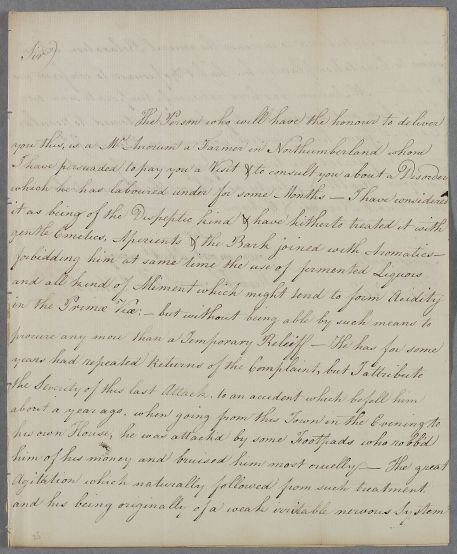 Sir
The Person who will have the honour to deliver
you this, is a Mr. a Farmer in Northumberland whom
I have persuaded to pay you a Visit & to consult you about a Disorder
which he has laboured under for some Months — I have considered
it as being of the Dispeptic kind & have hitherto treated it with
gentle Emetics, Aperients & the Bark joined with Aromatics —
forbidding him at same time the use of fermented Liquors
and all kind of Aliment which might tend to form Acidity
in the Primæ Viæ; — but without being able by such means to
procure any more than a Temporary Relieff — He has for some
years had repeated Returns of the Complaint, but I attribute
the Severity of this last Attack, to an accident which befell him
about a year ago, when going from this Town in the Evening to
his own House; he was attackd by some Footpads who robb'd
him of his money and bruised him most cruelly — The great
Agitation which naturally followed from such treatment,
and his being originally of a weak irritable nervous System